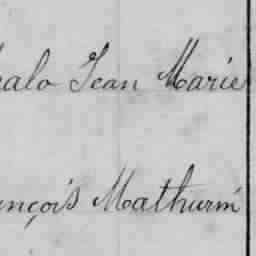 alo Jean Marie
ançois Mathurin